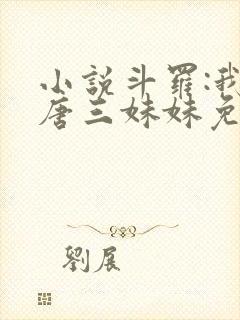 小説斗羅:我
唐三妹妹免
劉展